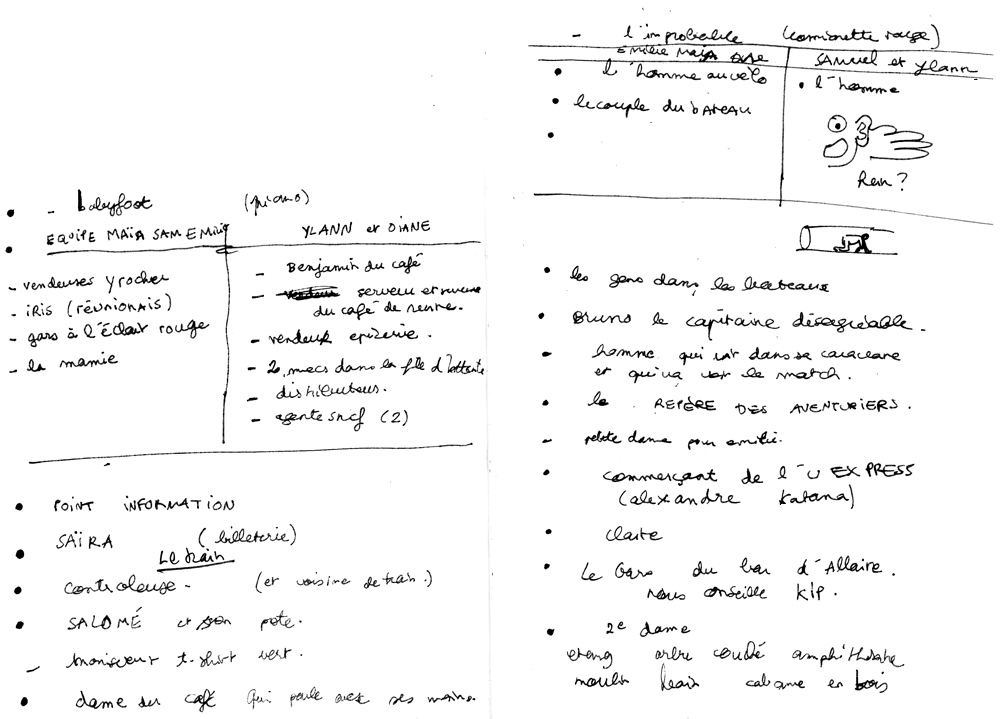 - babyfoot (piano)
EQUIPE MAÏA SAM EMilie
YLANN et DIANE
- vendeuses Yrocher
- iRiS (RÉUNIONAIS)
- gars à l'éclair rouge
- la mamie
- Benjamin du café
- serveur et serveuse
du café de rennes.
- vendeur epicerie.
- 2 mecs dans la file d'attente
- distributeur.
- agente sncf (2)
• POINT INFORMATION
• SAÏRA (billeterie)
Le train
• controleuse - (et voisine de train.)
• SALOMÉ et son pote.
- monsieur t-shirt vert.
• dame du café qui parle avec ses mains.
- l'improbable (camionette rouge)
Emilie Maïa
SAMuel et Ylann
• l'homme au vélo
• le couple du bATEAU
•
• l'homme
Rien ?
• les gens dans les bateaux
• Bruno le capitaine désagréable.
- homme qui vit dans sa caravane
et qui va voir le match.
• le REPÈRE DES AVENTURIERS.
- petite dame pour emilie.
• commerçant de l'U EXPRESS
(alexandre Katana)
• claire
• Le Gars du bar d'Allaire.
nous conseille KIP.
• 2e dame
etang arbre coudé amphithéatre
moulin cabane en bois